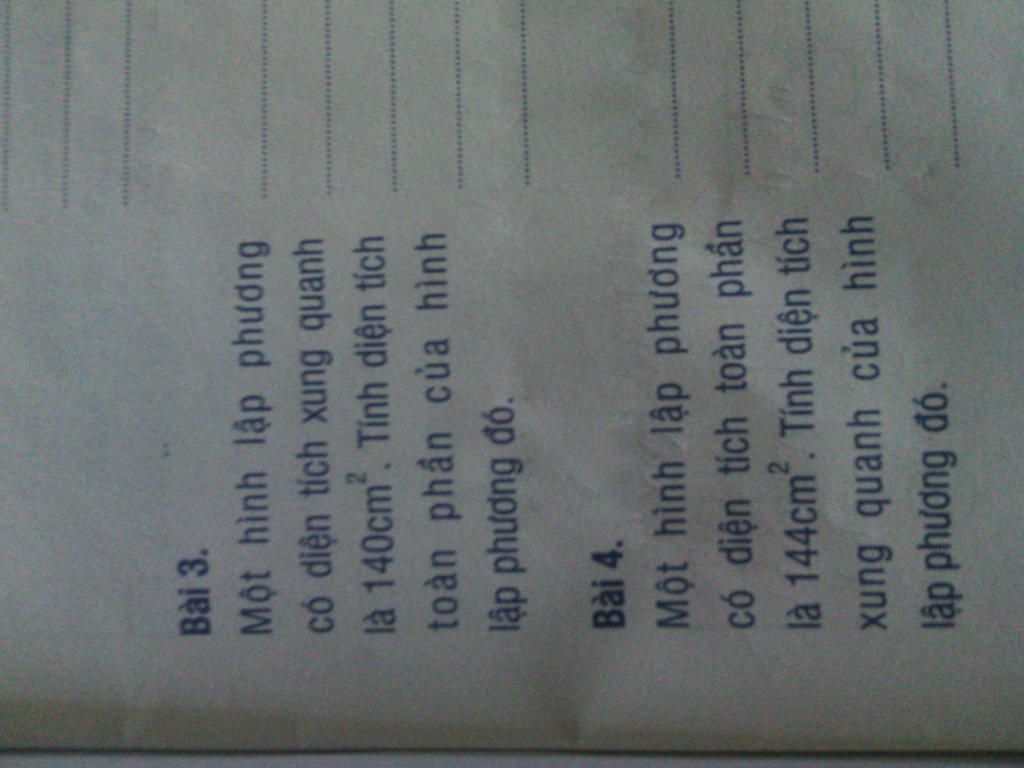 Bài 3.
Một hình lập phương
có diện tích xung quanh
là 140cm². Tính diện tích
toàn phần của hình
lập phương đó.
Bài 4.
Một hình lập phương
có diện tích toàn phần
là 144cm². Tính diện tích
xung quanh của hình
lập phương đó.